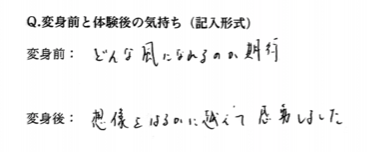 Q.変身前と体験後の気持ち（記入形式）
変身前： どんな風になれるのか期待
変身後： 想像をはるかに越えて感動しました